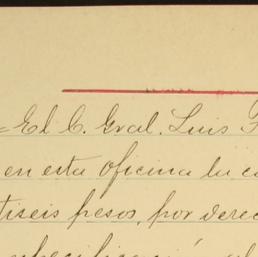 =El C. Gral. Luis F
en esta oficina la c
tiseis pesos, por derec